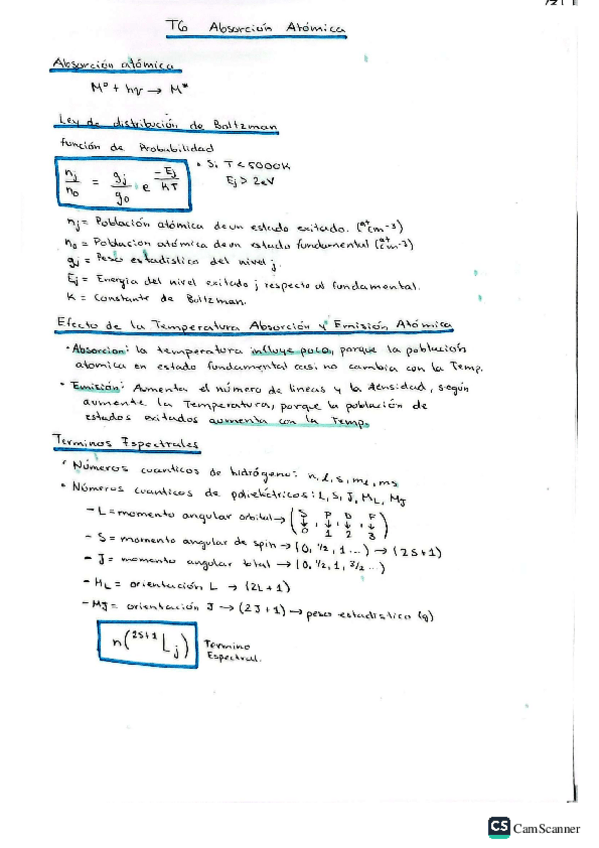 T6 Absorción Atómica
Absorción atómica
M° + hν → M*
Ley de distribución de Boltzman
función de Probabilidad
nj/n0 = gj/g0 · e^(-Ej/KT)
• Si T < 5000K
Ej > 2eV
nj = Población atómica de un estado exitado. (at cm⁻³)
n0 = Población atómica de un estado fundamental (at cm⁻³)
gj = Peso estadístico del nivel j.
Ej = Energía del nivel exitado j respecto al fundamental.
K = Constante de Boltzman.
Efecto de la Temperatura Absorción y Emisión Atómica
• Absorcion: la temperatura influye poco, porque la población
atomica en estado fundamental casi no cambia con la Temp.
• Emisión: Aumenta el número de lineas y la densidad, según
aumente la Temperatura, porque la población de
estados exitados aumenta con la Temp.
Terminos Espectrales
• Números cuanticos de hidrógeno: n, l, s, ml, ms
• Números cuanticos de polieléctricos: L, S, J, ML, MJ
- L = momento angular orbital → (S, P, D, F ↓ 0, 1, 2, 3)
- S = momento angular de spin → (0, 1/2, 1 ...) → (2S+1)
- J = momento angular total → (0, 1/2, 1, 3/2 ...)
- ML = orientación L → (2L+1)
- MJ = orientación J → (2J+1) → peso estadístico (g)
n(²ˢ⁺¹Lj) Termino
Espectral.
CS CamScanner